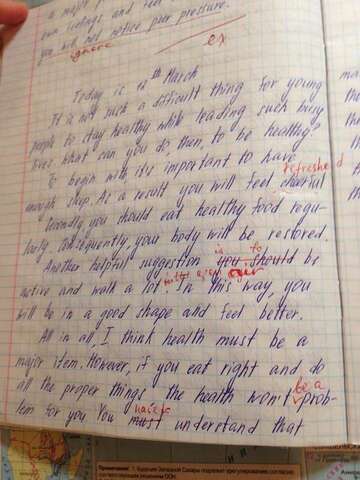 a major p
own feelings and feel
you will not notice peer pressure.
ignore
ex
Today is 12th March
It is not such a difficult thing for young
people to stay healthy while leading such busy
lives. What can you do then, to be healthy?
To begin with it's important to have
refreshed
enough sleep. As a result you will feel cheerful
Secondly you should eat healthy food regu-
larly. Consequently, your body will be restored.
is to
Another helpful suggestion you should be
active and walk a lot. In this way, you
air
will be in a good shape and feel better.
All in all, I think health must be a
major item. However, if you eat right and do
all the proper things the health won't prob-
be a
lem for you. You must understand that
ma
th
th
th
Примечание: 1. Будущее Западной Сахары подлежит урегулированию согласно
соответствующим решениям ООН.